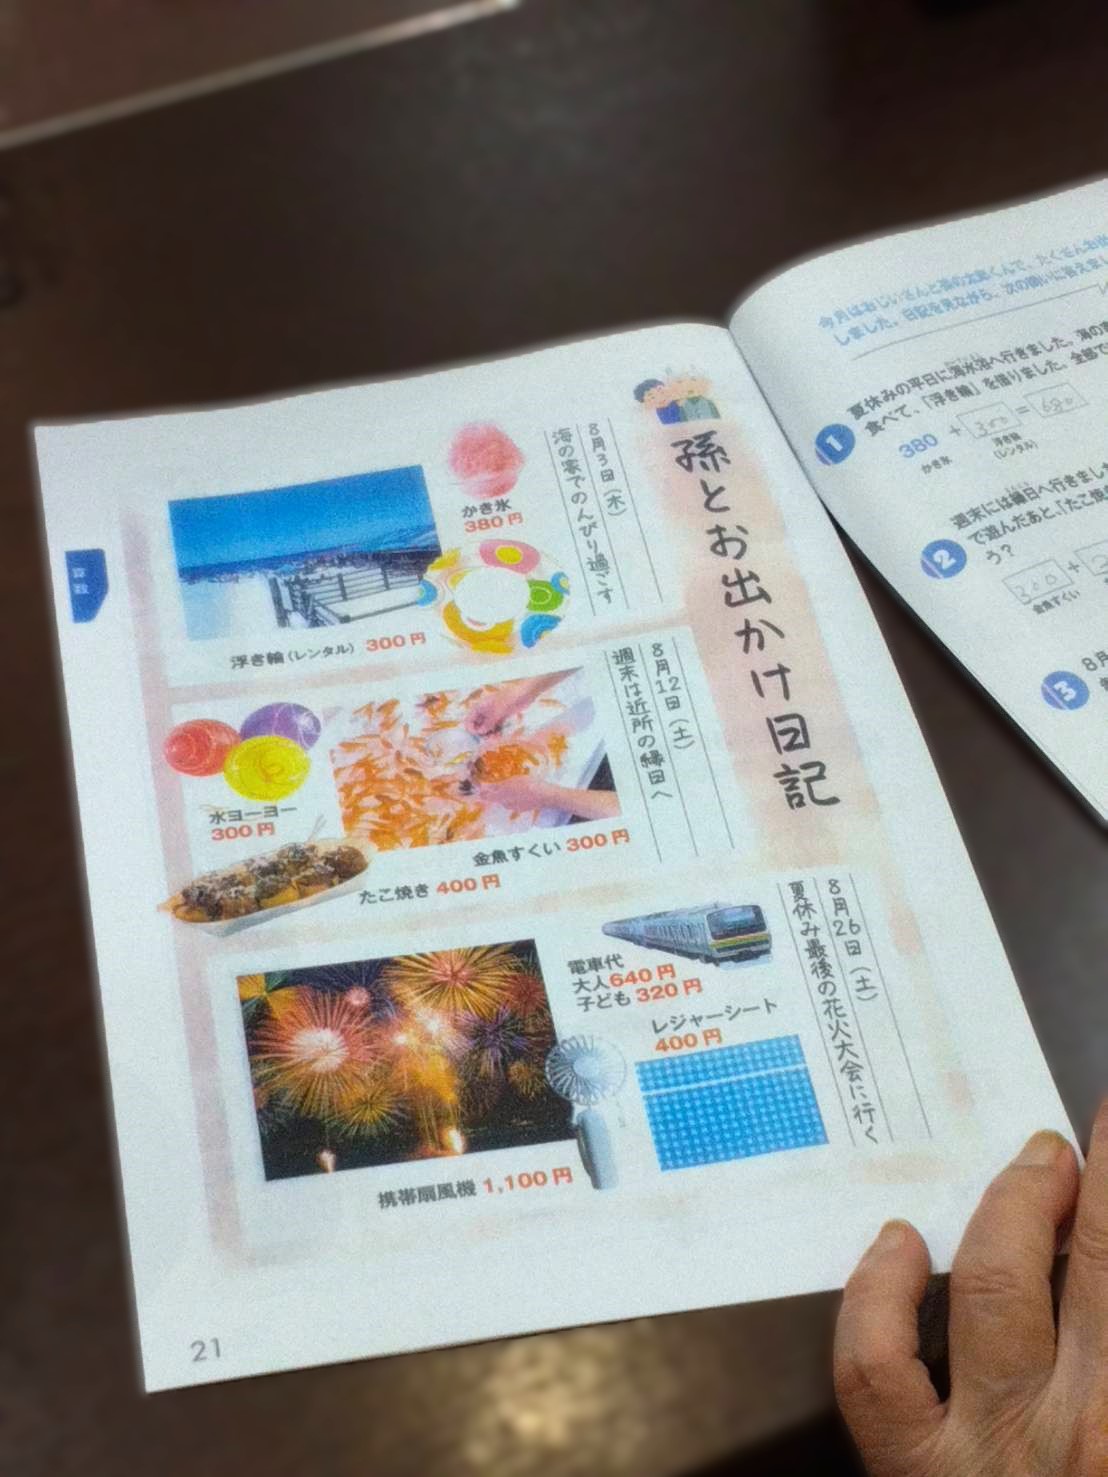 孫とお出かけ日記
8月3日（木）
海の家でのんびり過ごす
かき氷
380円
浮き輪（レンタル） 300円
8月12日（土）
週末は近所の縁日へ
水ヨーヨー
300円
金魚すくい 300円
たこ焼き 400円
8月26日（土）
夏休み最後の花火大会に行く
電車代
大人640円
子ども 320円
レジャーシート
400円
携帯扇風機 1,100円
算数
21
今月はおじいさんと孫の
しました。日記を見ながら、次の問いに答えまし
1 夏休みの平日に海水浴へ行きました。海の
食べて、「浮き輪」を借りました。全部で
380 + 300 = 680
かき氷
浮き輪
（レンタル）
2 週末には縁日へ行きました
で遊んだあと、「たこ焼
う？
300 +
金魚すくい
3 8月